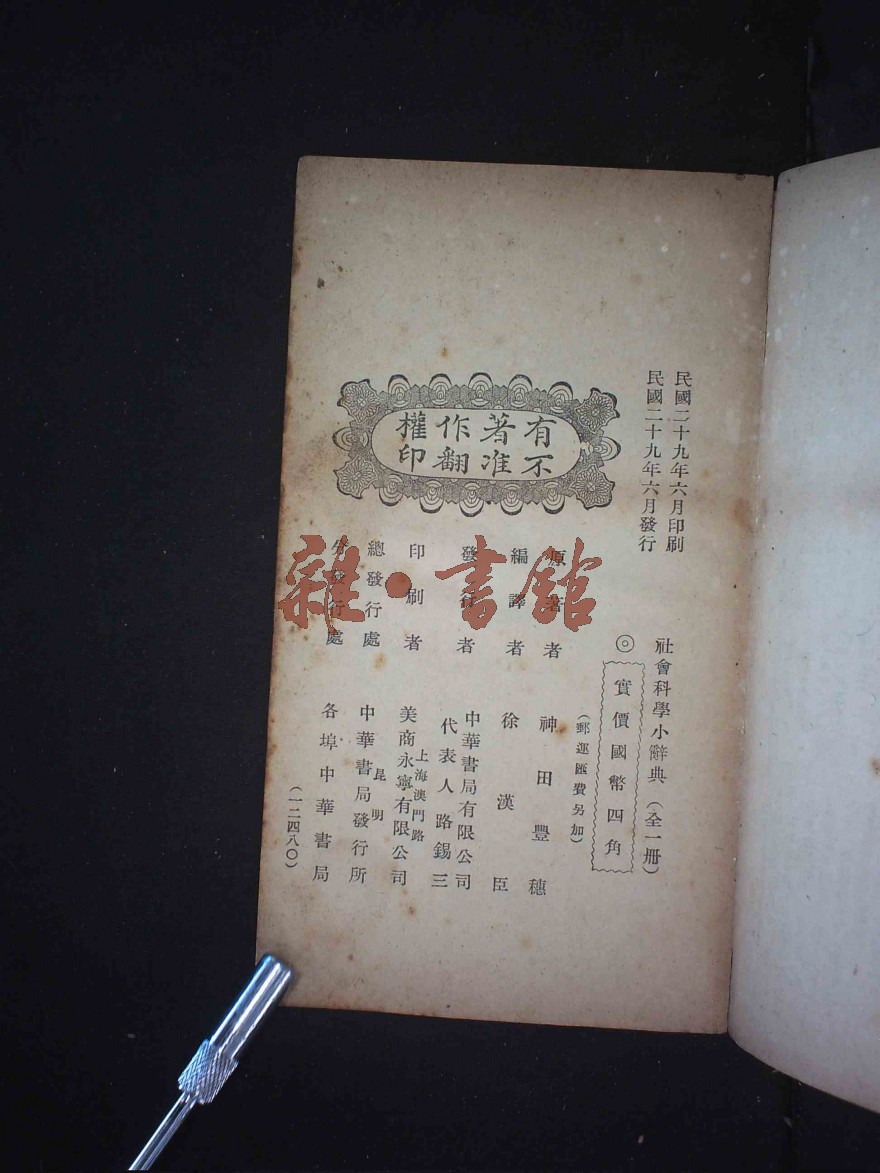 民國二十九年六月印刷
民國二十九年六月發行
有著作權
不准翻印
社會科學小辭典（全一册）
◎實價國幣四角
（郵運匯費另加）
原著者 神田豐穗
編譯者 徐漢臣
發行者 中華書局有限公司
代表人路錫三
印刷者 上海澳門路
美商永寧有限公司
總發行處 昆明
中華書局發行所
分發行處 各埠中華書局
（一二四八〇）
雜·書館